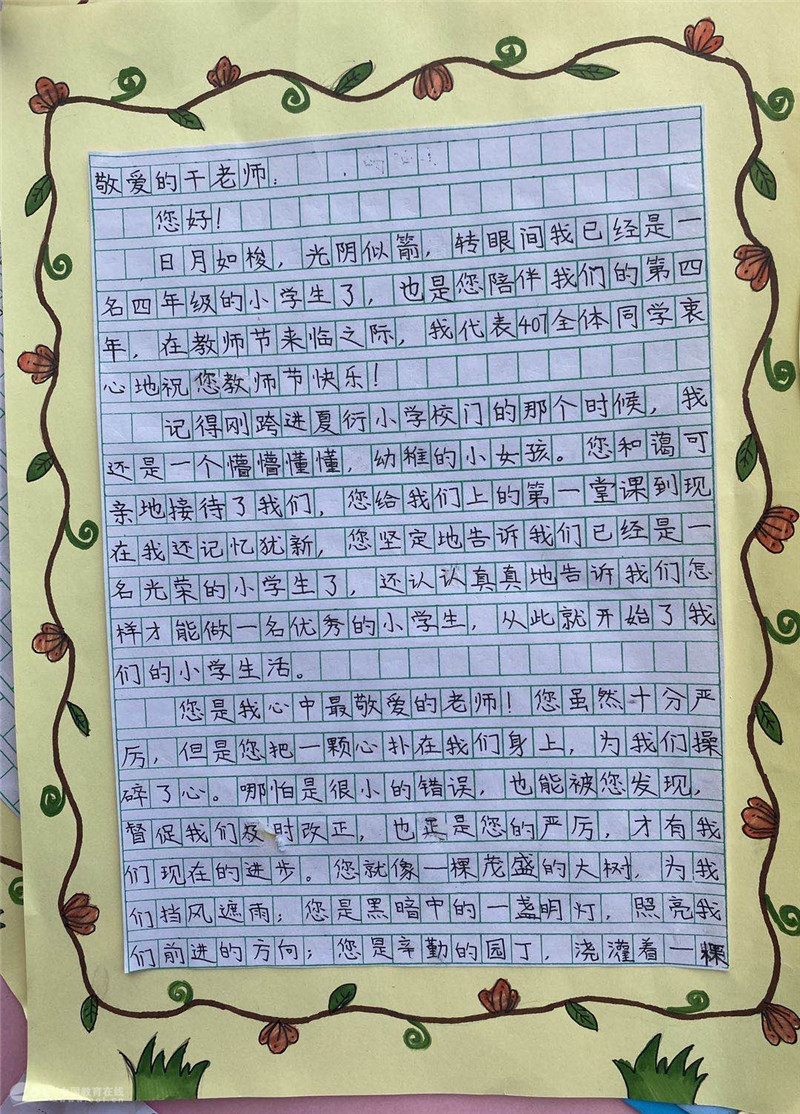 敬爱的干老师：
您好！
日月如梭，光阴似箭，转眼间我已经是一
名四年级的小学生了，也是您陪伴我们的第四
年，在教师节来临之际，我代表407全体同学衷
心地祝您教师节快乐！
记得刚跨进夏衍小学校门的那个时候，我
还是一个懵懵懂懂，幼稚的小女孩。您和蔼可
亲地接待了我们，您给我们上的第一堂课到现
在我还记忆犹新，您坚定地告诉我们已经是一
名光荣的小学生了，还认认真真地告诉我们怎
样才能做一名优秀的小学生，从此就开始了我
们的小学生活。
您是我心中最敬爱的老师！您虽然十分严
厉，但是您把一颗心扑在我们身上，为我们操
碎了心。哪怕是很小的错误，也能被您发现，
督促我们及时改正，也正是您的严厉，才有我
们现在的进步。您就像一棵茂盛的大树，为我
们挡风遮雨；您是黑暗中的一盏明灯，照亮我
们前进的方向；您是辛勤的园丁，浇灌着一棵
教育在线